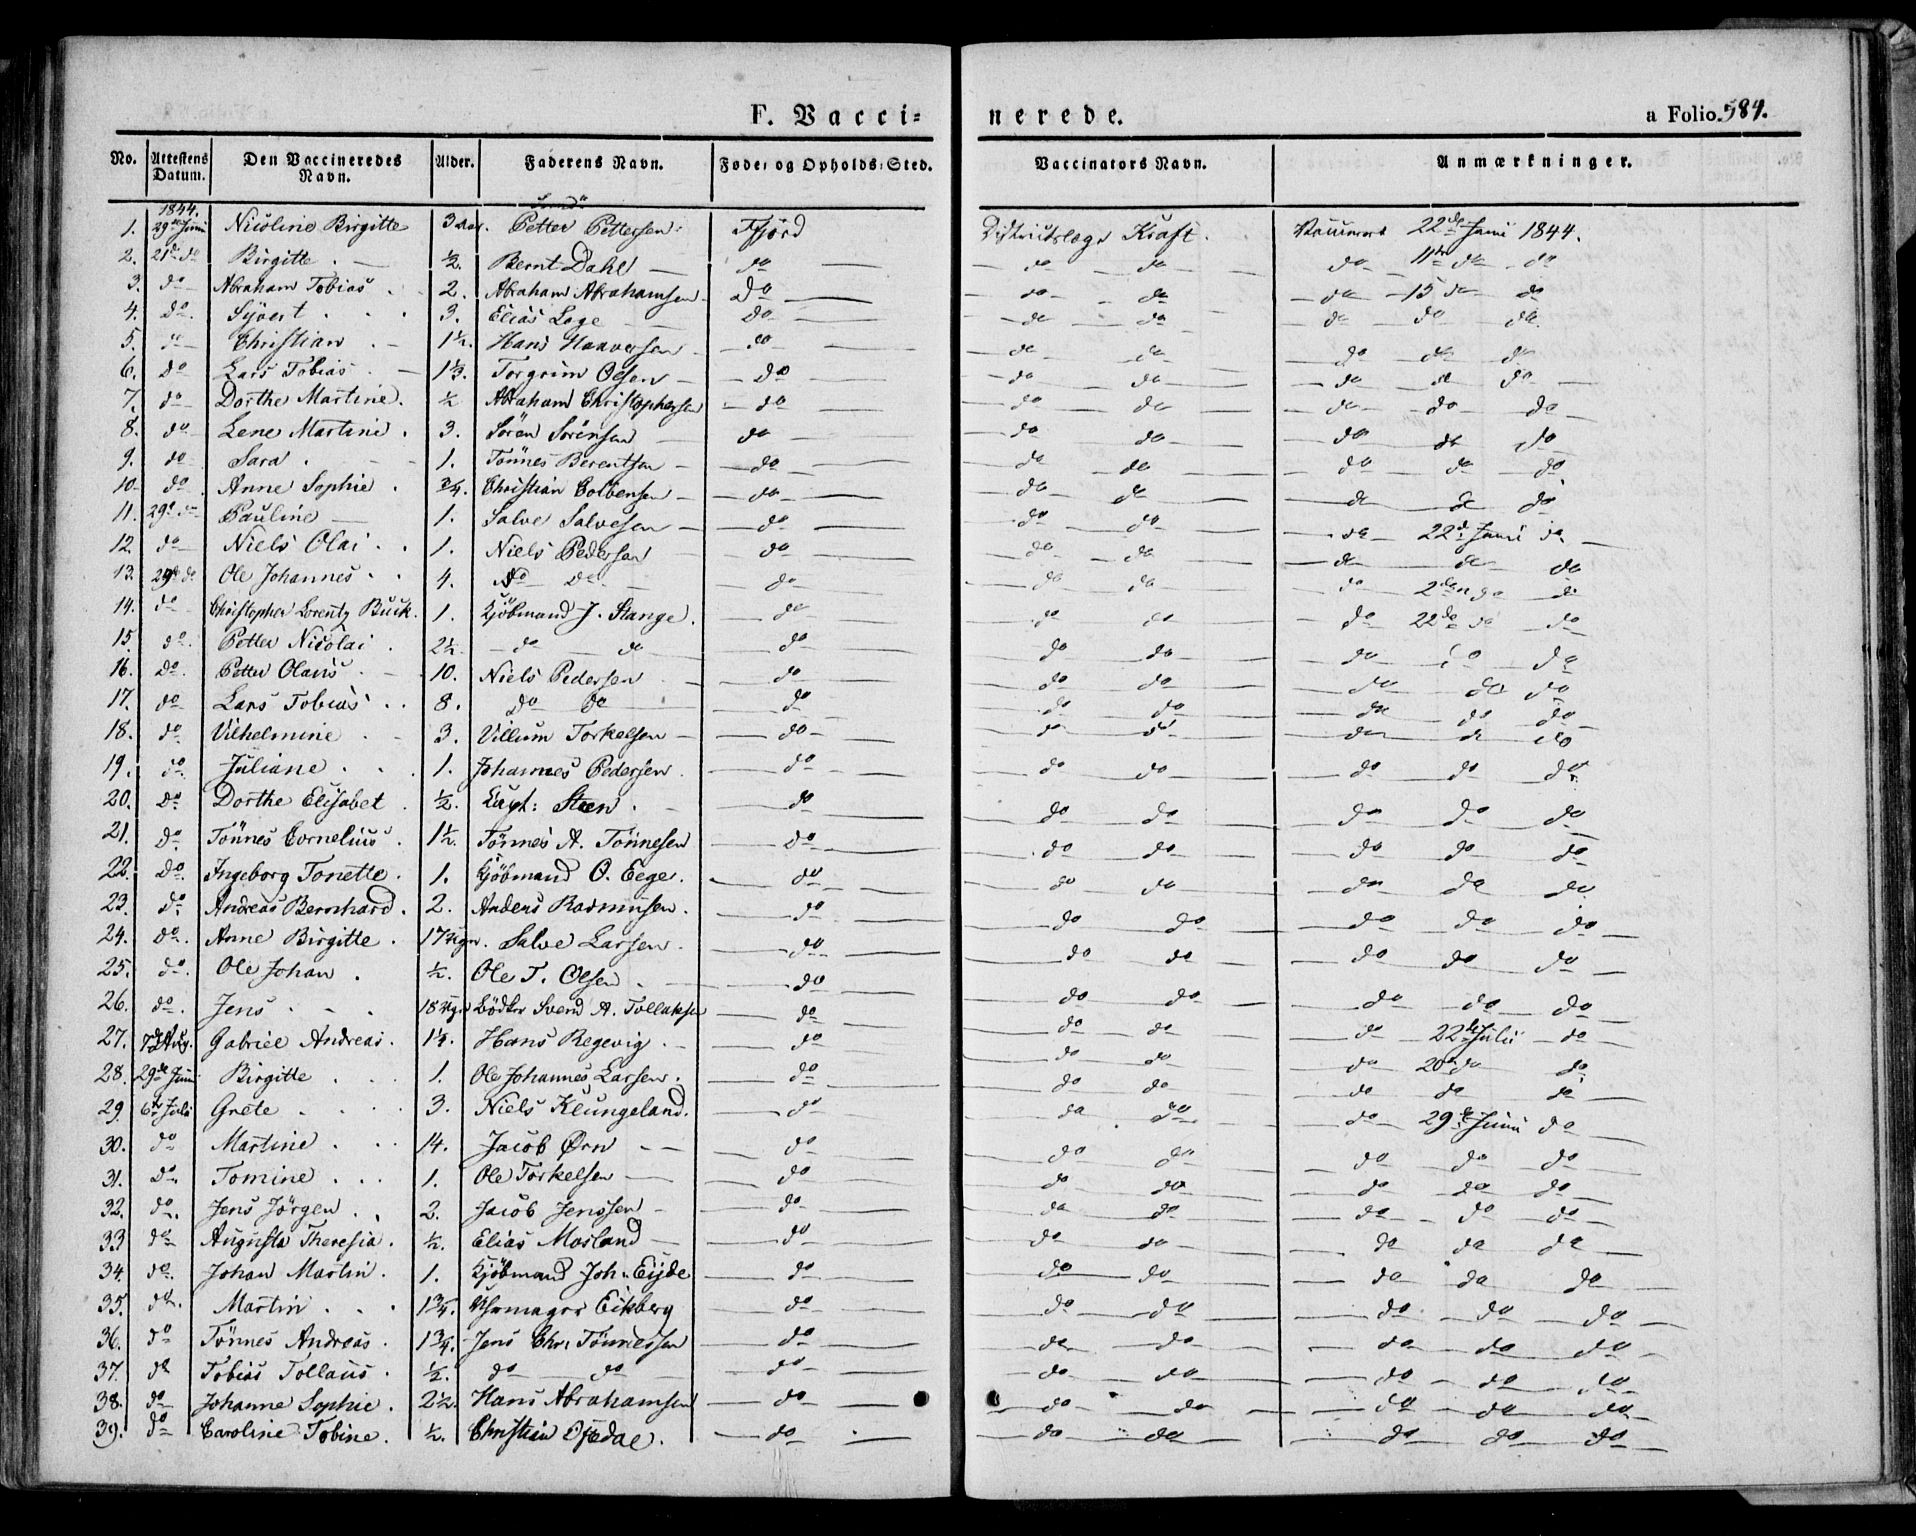 F. Vacci= nerede. a Folio. 584.
No. Attestens Datum. Den Vaccineredes Navn. Alder. Faderens Navn. Føde- og Opholds-Sted. Vaccinators Navn. Anmærkninger.
1844.
1. 29de Juni Nicoline Birgitte 3 Petter Pettersen Districtslæge Kraft. 22de Juni 1844.
2. 21de do Birgitte. ½. Bernt Dahl do do do do 11te do do
3. do Abraham Tobias. 2. Abraham Abrahamsen Do do do do 15 do do
4. do. Syvert. 3. Elias Loge do do do do do do.
5. do Christian. 1½. Hans Haaversen do do do do do do
6. do Lars Tobias. 1⅓. Torgrim Olsen do do do do do do
7. do Dorthe Martine. ½ Abraham Christophersen do do do do do do
8. do Lene Martine. 3. Sören Sörensen do do do do do do
9. do Sara. 1. Tönnes Berentsen do do do do do do
10. do Anne Sophie. ¾. Christian Colbensen do do do do do do
11. 29de do Pauline 1. Salve Salvesen do do do do 22de Juni do
12. do Niels Olai. 1. Niels Pedersen do do do do do do
13. 29de do Ole Johannes. 4. do do do do do do 2den do do
14. do Christopher Lorentz Buck. 1. Kjöbmand J. Stange. do do do do 22de do do
15. do. Petter Nicolai. 2½. do do do do do do do do
16. do. Petter Olaus. 10. Niels Pedersen do do do do do do
17. do Lars Tobias. 8. do do do do do do do do
18. do Vilhelmine 3. Villum Torkelsen do do do do do do
19. do. Juliane. 1. Johannes Pedersen. do do do do do do
20. do Dorthe Elisabet. ½. Capt: Steen. do do do do do do
21. do Tönnes Cornelius. 1½. Tönnes A. Tönnesen do do do do do do
22. Do. Ingeborg Tonette. 1. Kjöbmand O. Eege. do do do do do do
23. do. Andreas Bernhard. 2. Anders Rasmusen. do do do do do do
24. do. Anne Birgitte. 17 Salve Larsen. do do do do do do
25. do. Ole Johan. ½. Ole T. Olsen do do do do do do
26. do. Jens. 18 Bödker Svend A. Tollaksen do do do do do do
27. 7de Aug. Gabriel Andreas. 1¼. Hans Regevig. do do do do 22de Julii do
28. 29de Juni Birgitte. 1. Ole Johannes Larsen. do do do do 20de do do
29. 6te Juli Grete. 3. Niels Klungeland. do do do do do do
30. do Martine. 14. Jacob Ørn do do do do 29de Juni do
31. Do. Tomine. 1. Ole Torkelsen do do do do do do
32. do. Jens Jörgen. 2. Jacob Jenssen do do do do do do
33 do Augusta Theresia. ½. Elias Mosland do do do do do do
34. do. Johan Martin. 1. Kjöbmand Joh. Eijde do do do do do do
35. do. Martin. 1¾. Eikberg do do do do do do
36. do Tönnes Andreas. 1¾. Jens Chr. Tönnessen do do do do do do
37. do Tobias Tollaus. ½. do do do do do do do do
38. do Johanne Sophie. 2½. Hans Abrahamsen do do do do do do
39. do Caroline Tobine. ½. Christian do do do do do do